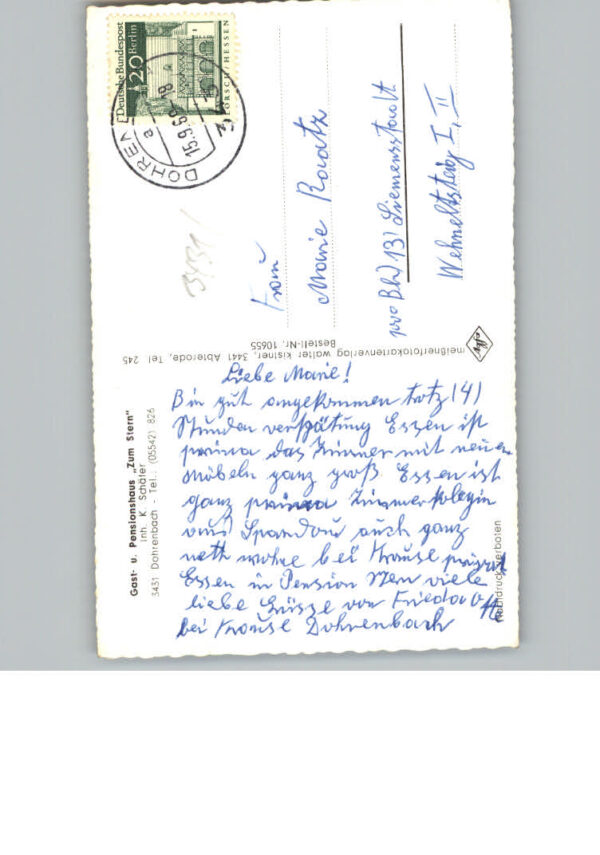 Deutsche Bundespost
Berlin
20
LORSCH/HESSEN
15.9.69-18
3431
Frau
Marie Raatz
Siemensstadt
Wehneltsteig I, II
meißnerfotokartenverlag walter kistner, 3441 Abterode, Tel. 245
Bestell-Nr. 10655
Agfa
Gast- u. Pensionshaus „Zum Stern"
Inh. K. Schäfer
3431 Dohrenbach - Tel.: (05542) 826
Liebe Marie!
Bin gut angekommen trotz (4)
Stunden verspätung Essen ist
prima das Zimmer mit neuen
möbeln ganz groß Essen ist
ganz prima Zimmerkolegin
aus Spandau auch ganz
nett wohne bei Krause privat
Essen in Pension Stern viele
liebe Grüsse von Frieda
bei Krause Dohrenbach
Nachdruck verboten